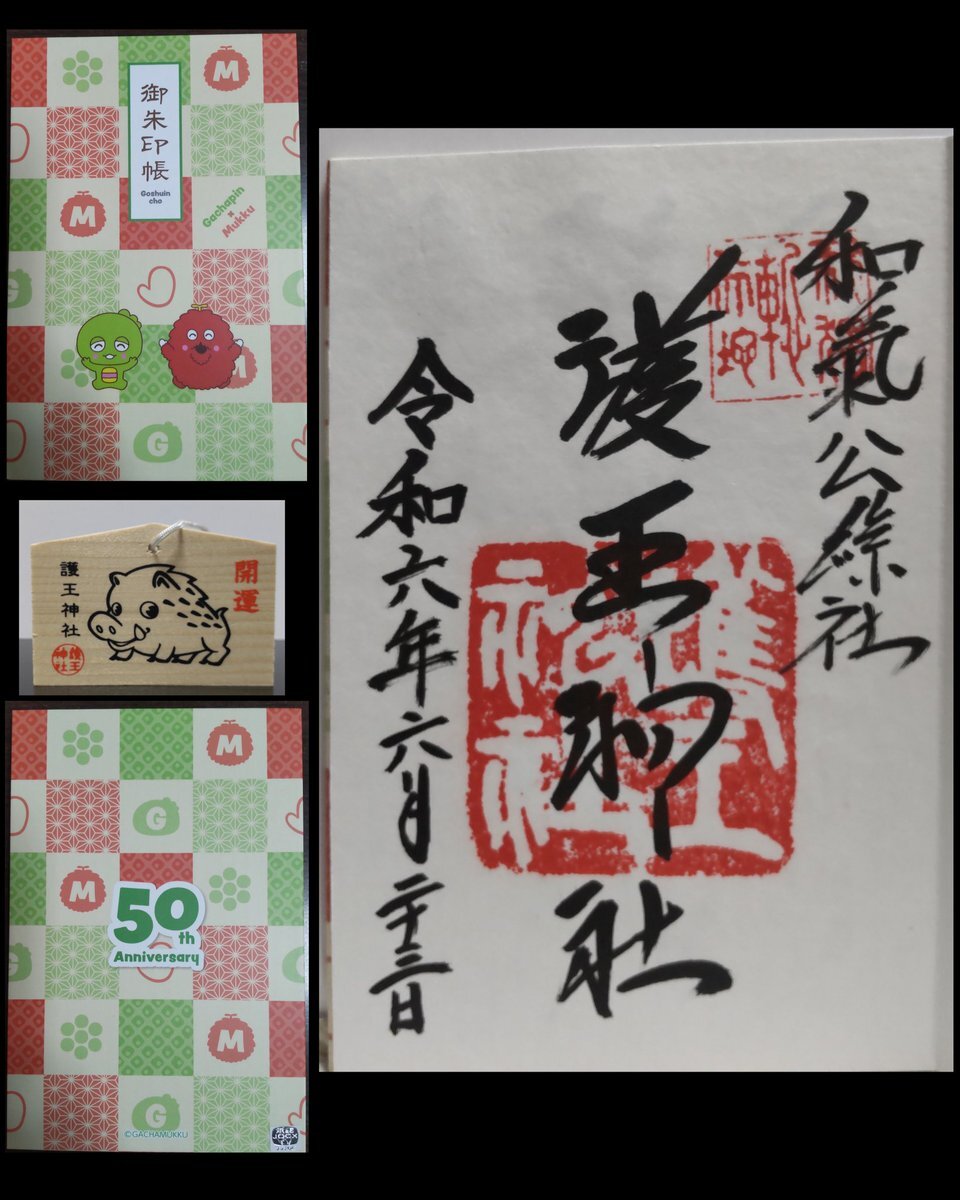 御朱印帳
Goshuin
cho
Gachapin
×
Mukku
M
M
M
G
G
開運
護王神社
護王
神社
M
G
M
50th
Anniversary
G
M
G
©GACHAMUKKU
JOCX
TV
和氣公綜社
護王神社
令和六年六月二十三日
護王
神社